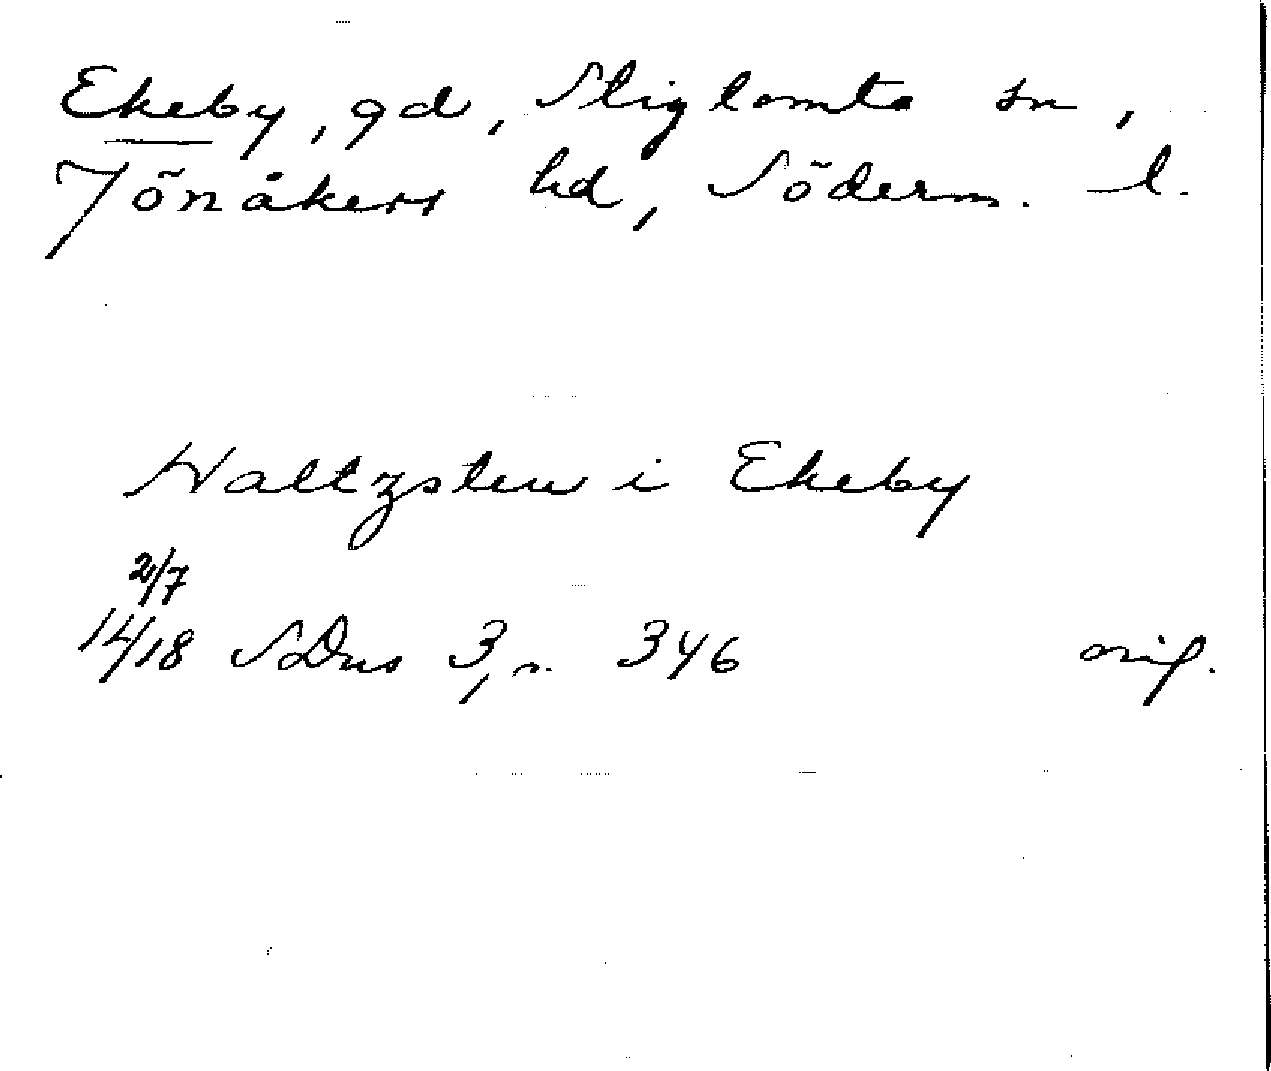 Ekeby, gd, Stigtomta sn,
Jönåkers hd, Söderm. l.
Waltzsten i Ekeby
2/7
14/18 SDns 3, s. 346 orig.